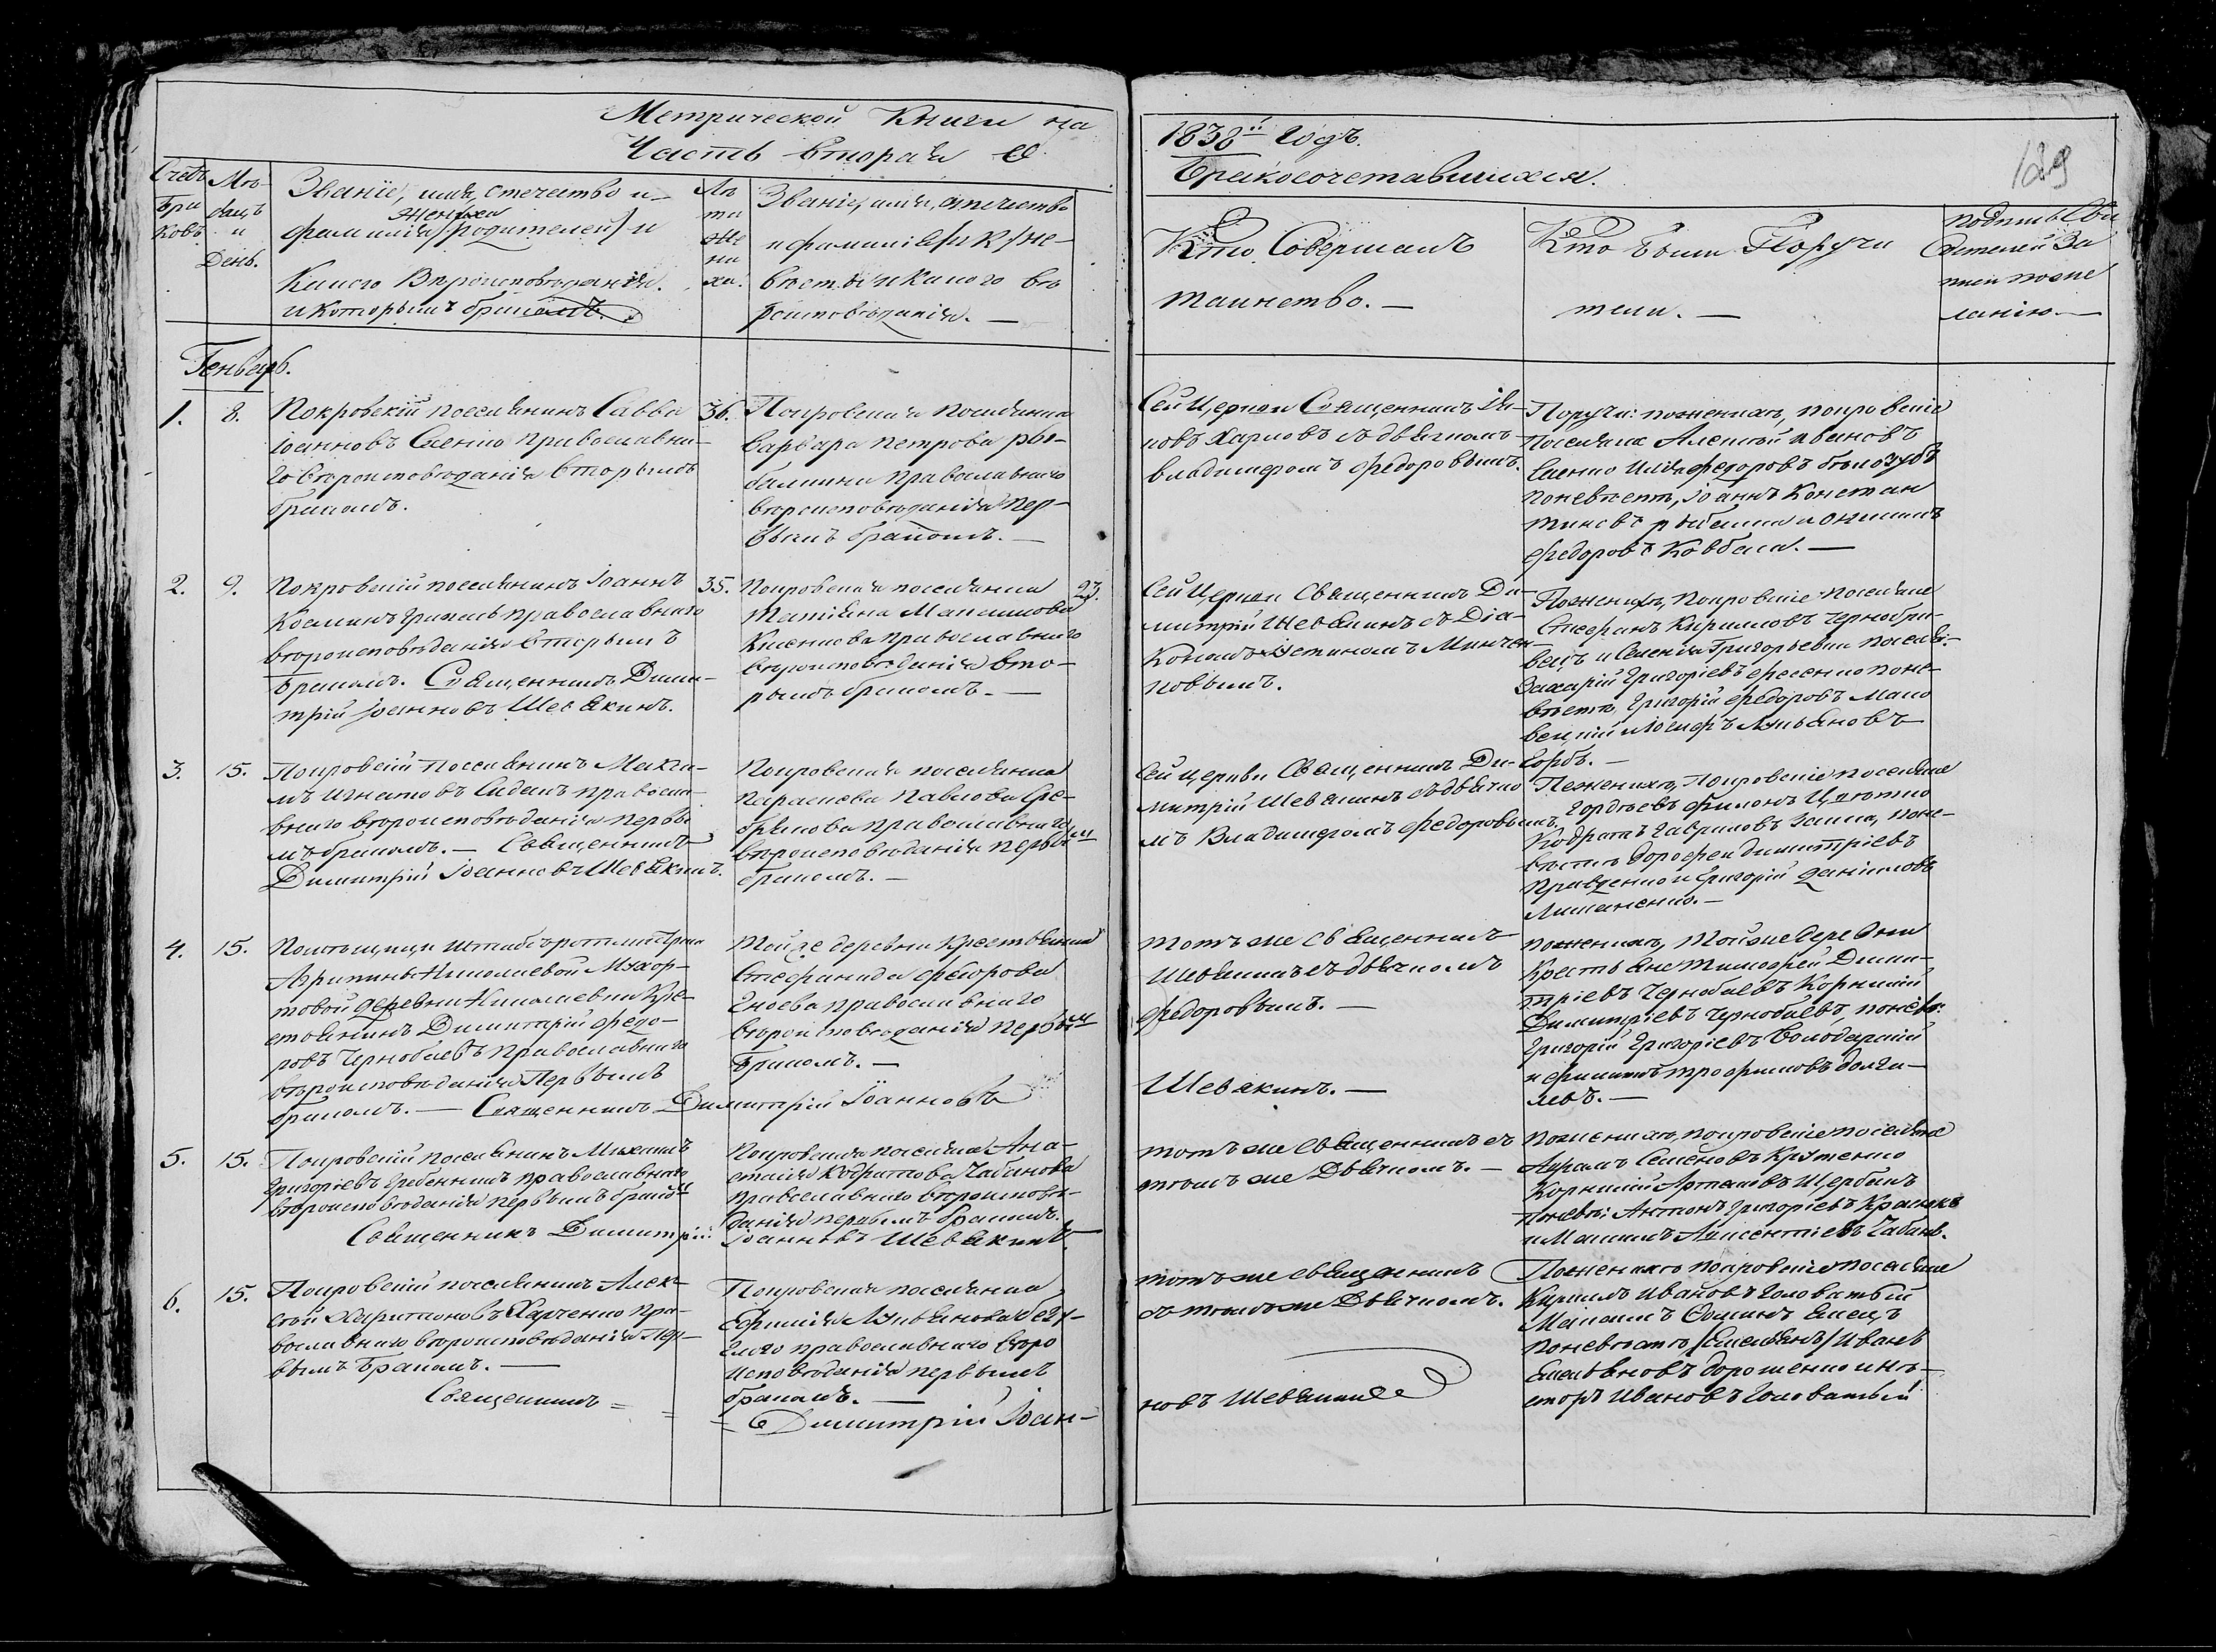 Метрической Книги на
Часть вторая О
1838й годъ.
Бракосочетавшихся.
129
Счетъ
Бра
ковъ.
Мѣ-
сяцъ
и
День.
Званіе, имя, отечество и
жениха
фамилія /родителей/ и
Какого Вѣроисповѣданія.
и которымъ бракомъ.
Лѣ
та
же
ни
ха.
Званіе, имя, отечество
и фамилія
вѣсты и какого вѣ
роисповѣданія. —
Кто Совершалъ
таинство. —
Кто были Поручи
тели. —
Подпись Сви
дѣтелей За
писи поже
ланію. —
Генварь.
1.
8.
Покровскій поселянинъ Савва
Іоанновъ Саенко православна-
го вѣроисповѣданія вторымъ
бракомъ.
36.
Покровская поселянка
Варвара Петрова Ры-
балкина православнаго
вѣроисповѣданія пер-
вымъ бракомъ. —
Сей Церкви Священникъ Іа-
ковъ Харловъ съ дьячкомъ
Владимѣромъ Федоровымъ.
Поручи: по женихѣ, покровскіе
Поселяне Алексѣй Ивановъ
Саенко Илія Федоровъ Бѣлозубъ
по невѣстѣ, Іоаннъ Констан
тиновъ Рыбалка и
Федоровъ Ковбаса. —
2.
9.
Покровскій поселянинъ Іоаннъ
Косминъ православнаго
вѣроисповѣданія вторымъ
бракомъ. Священникъ Дими-
трій Іоанновъ Шевякинъ.
35.
Покровская поселянка
Татіяна Максимова
православнаго
вѣроисповѣданія вто-
рымъ бракомъ. —
23.
Сей Церкви Священникъ Ди-
митрій Шевякинъ съ Діа-
кономъ Устиномъ Минчен-
ковымъ.
По женихѣ, Покровскіе поселяне
Стефанъ Кириловъ Чернобри-
вецъ и Григорьевъ
Захарій Григорьевъ Фесенко по не-
вѣстѣ, Григорій Федоровъ Мако
вецкій и Іосифъ Лукьяновъ
Сорбъ. —
3.
15.
Покровскій Поселянинъ Макси-
мъ Игнатовъ Сидакъ правосла-
внаго вѣроисповѣданія первы
мъ бракомъ. — Священникъ
Димитрій Іоанновъ Шевякинъ.
Покровская поселянка
Параскева Павлова Сре-
брякова православнаго
вѣроисповѣданія первым
бракомъ. —
Сей церкви Священникъ Ди-
митрій Шевякинъ съ дьячко
мъ Владимѣромъ Федоровымъ.
По женихѣ, Покровскіе поселяне
Гордѣевъ Филонъ
Кодратъ Гавриловъ по не-
вѣстѣ Дорофей Димитріевъ
Правденко и Григорій Даніиловъ
Лиманенко. —
4.
15.
Помѣщицы Штабсъ
Агрипины Николаевой Мухор-
товой деревни Николаевки Кре-
стьянинъ Димитрій Федо-
ровъ Чернобаевъ православнаго
вѣроисповѣданія Первымъ
бракомъ. — Священникъ Димитрій Іоанновъ
Той же деревни Крестьянка
Стефанида Федорова
Гноева православнаго
вѣроисповѣданія первым
бракомъ. —
Тотъ же священникъ
Шевякинъ съ дьячкомъ
Федоровымъ. —
Шевякинъ. —
По женихѣ, Той же деревни
Крестьяне Тимофей Дими-
тріевъ Чернобаевъ Корнилій
Димитріевъ Чернобаевъ, по невѣ:
Григорій Григоріевъ Володарскій
и Филипъ Трофимовъ Долга-
левъ. —
5.
15.
Покровскій поселянинъ Михаилъ
Григоріевъ Гребенникъ православнаго
вѣроисповѣданія первымъ бракомъ
Священникъ Димитрій
Покровская поселянка Ана-
стасія Кодратова Чабанова
православнаго вѣроисповѣ-
данія первымъ бракомъ.
Іоанновъ Шевякинъ.
тотъ же священникъ съ
тѣмъ же Дьячкомъ. —
По женихѣ, покровскіе поселяне
Абрамъ Семеновъ Крутенко
Корнилій Артемовъ Щербакъ
По невѣ: Антонъ Григоріевъ
и Максимъ Авксентіевъ Чабанъ.
6.
15.
Покровскій поселянинъ Алек-
сѣй Харитоновъ Харченко пра-
вославнаго вѣроисповѣданія Пер-
вымъ Бракомъ. —
Священникъ = = =
Покровская поселянка
Ефимія Лукьянова
православнаго вѣро
исповѣданія первымъ
бракомъ. —
Димитрій Іоан-
тотъ же священникъ
съ тѣмъ же Дьячкомъ.
новъ Шевякинъ
По женихѣ покровскіе поселяне
Кирилъ Ивановъ Головатый
Максимъ Фоминъ Емецъ
По невѣстѣ /Емельянъ/ Иванъ
Емельяновъ Дорошенко и Не-
сторъ Ивановъ Головатый